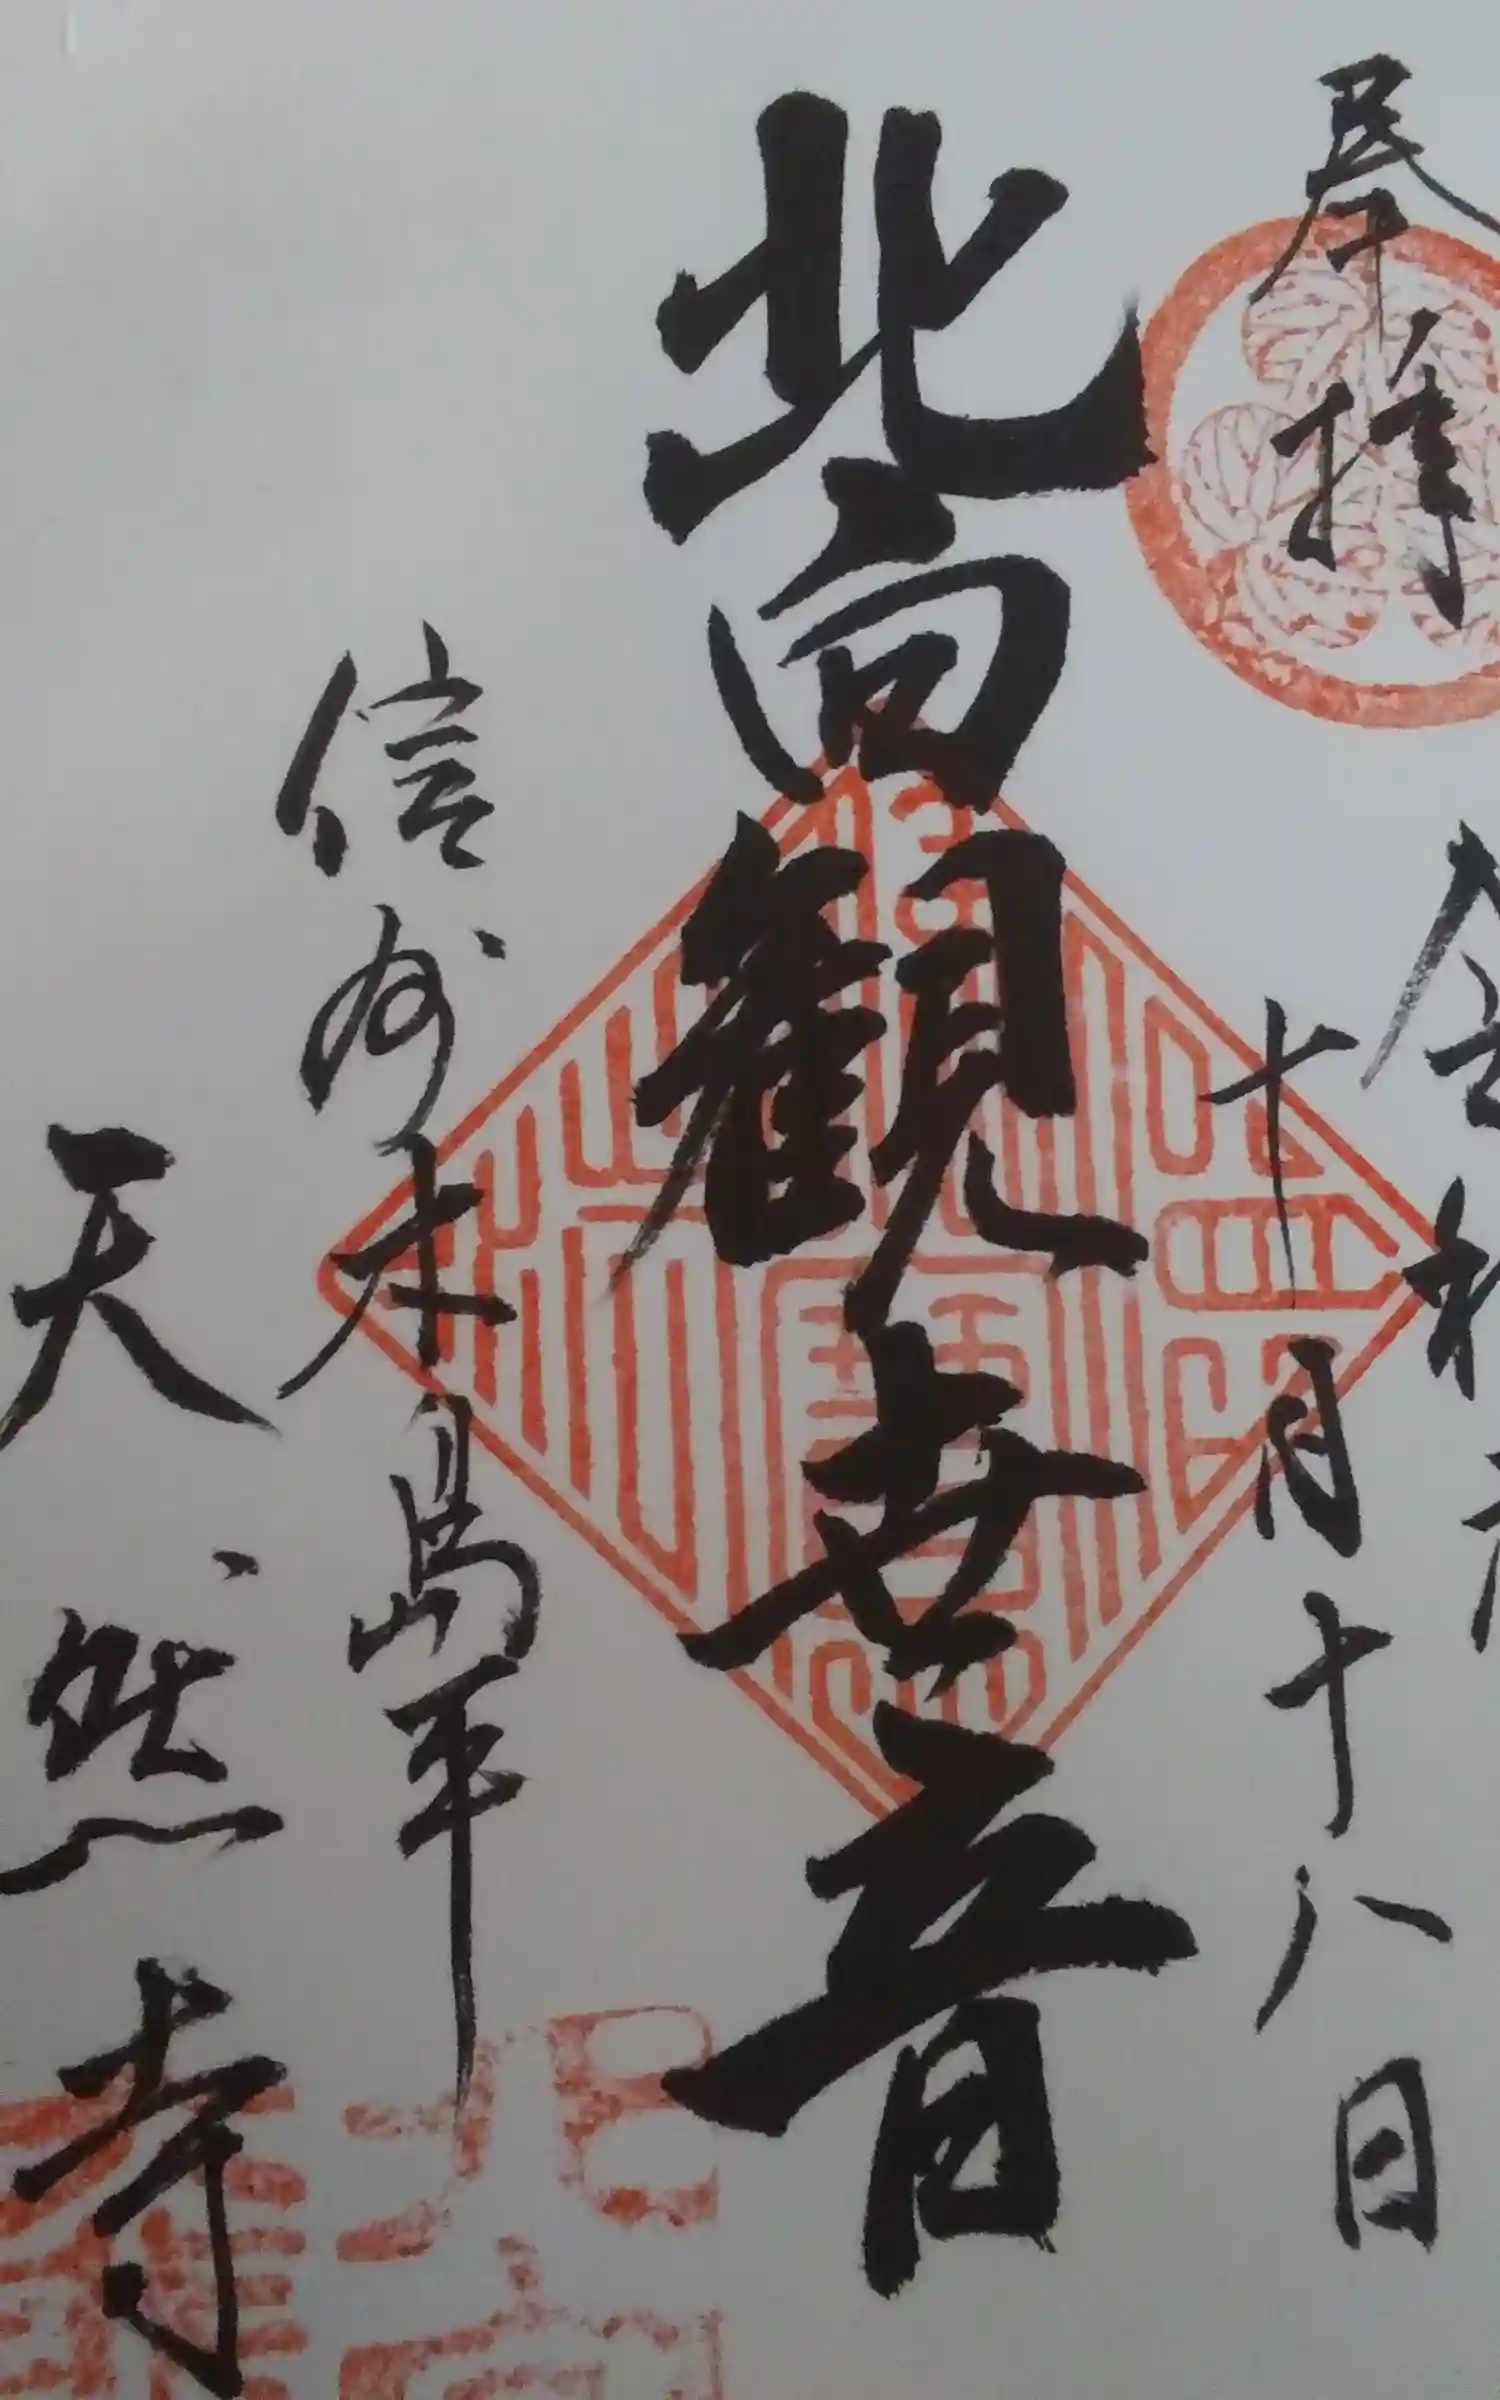 奉拝
令和元
十月十八日
北向観世音
信州木島平
天然寺